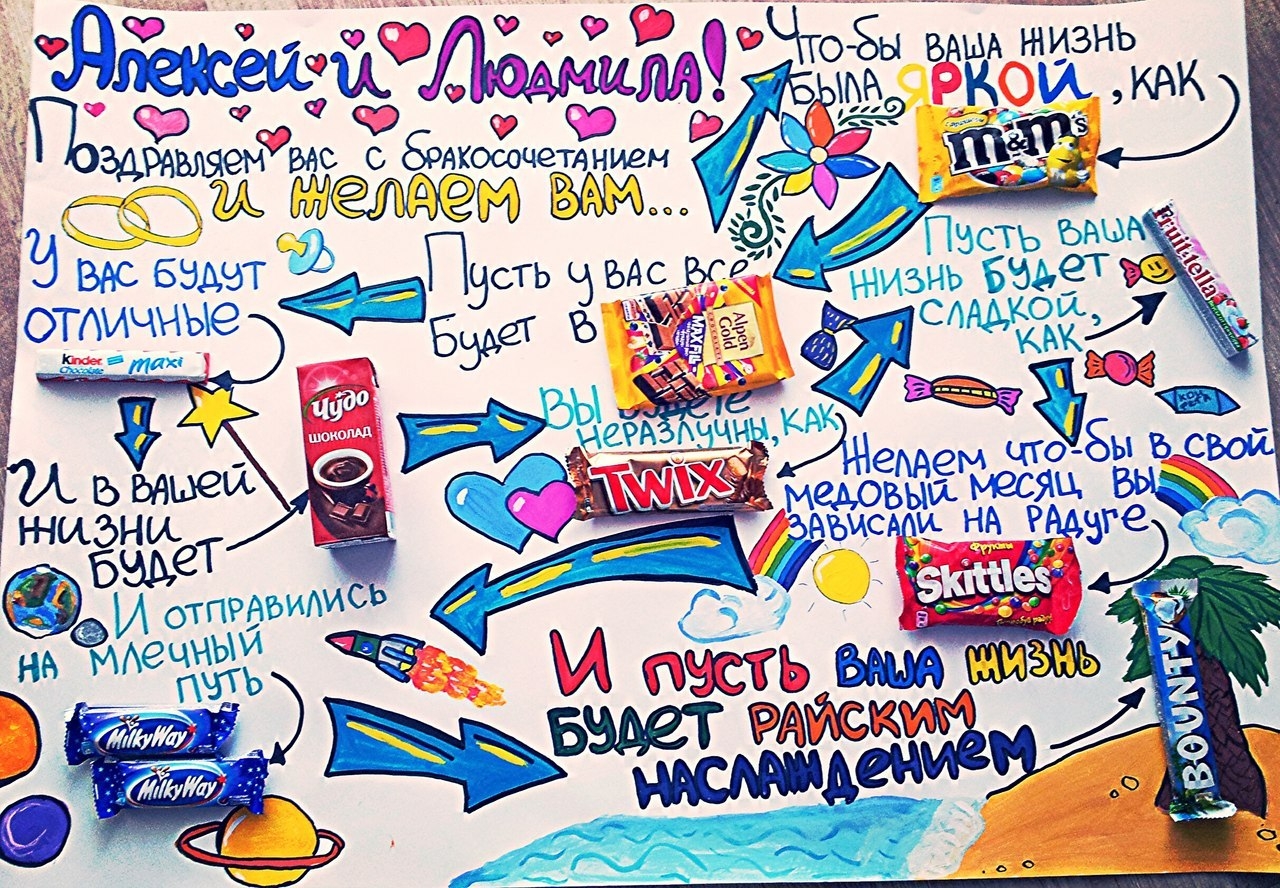 Алексей и Людмила!
Поздравляем вас с бракосочетанием
и желаем вам...
Что-бы ваша жизнь
была яркой, как
m&m's
Пусть у вас все
будет в
Alpen Gold
MAXFUN
У вас будут
отличные
Kinder Chocolate maxi
И в вашей
жизни
будет
Чудо
ШОКОЛАД
Вы будете
неразлучны, как
TWIX
Пусть ваша
жизнь будет
сладкой,
как
Fruittella
Желаем что-бы в свой
медовый месяц вы
зависали на радуге
Фрукты
Skittles
И отправились
на млечный
путь
MilkyWay
MilkyWay
И пусть ваша жизнь
будет райским
наслаждением
BOUNTY